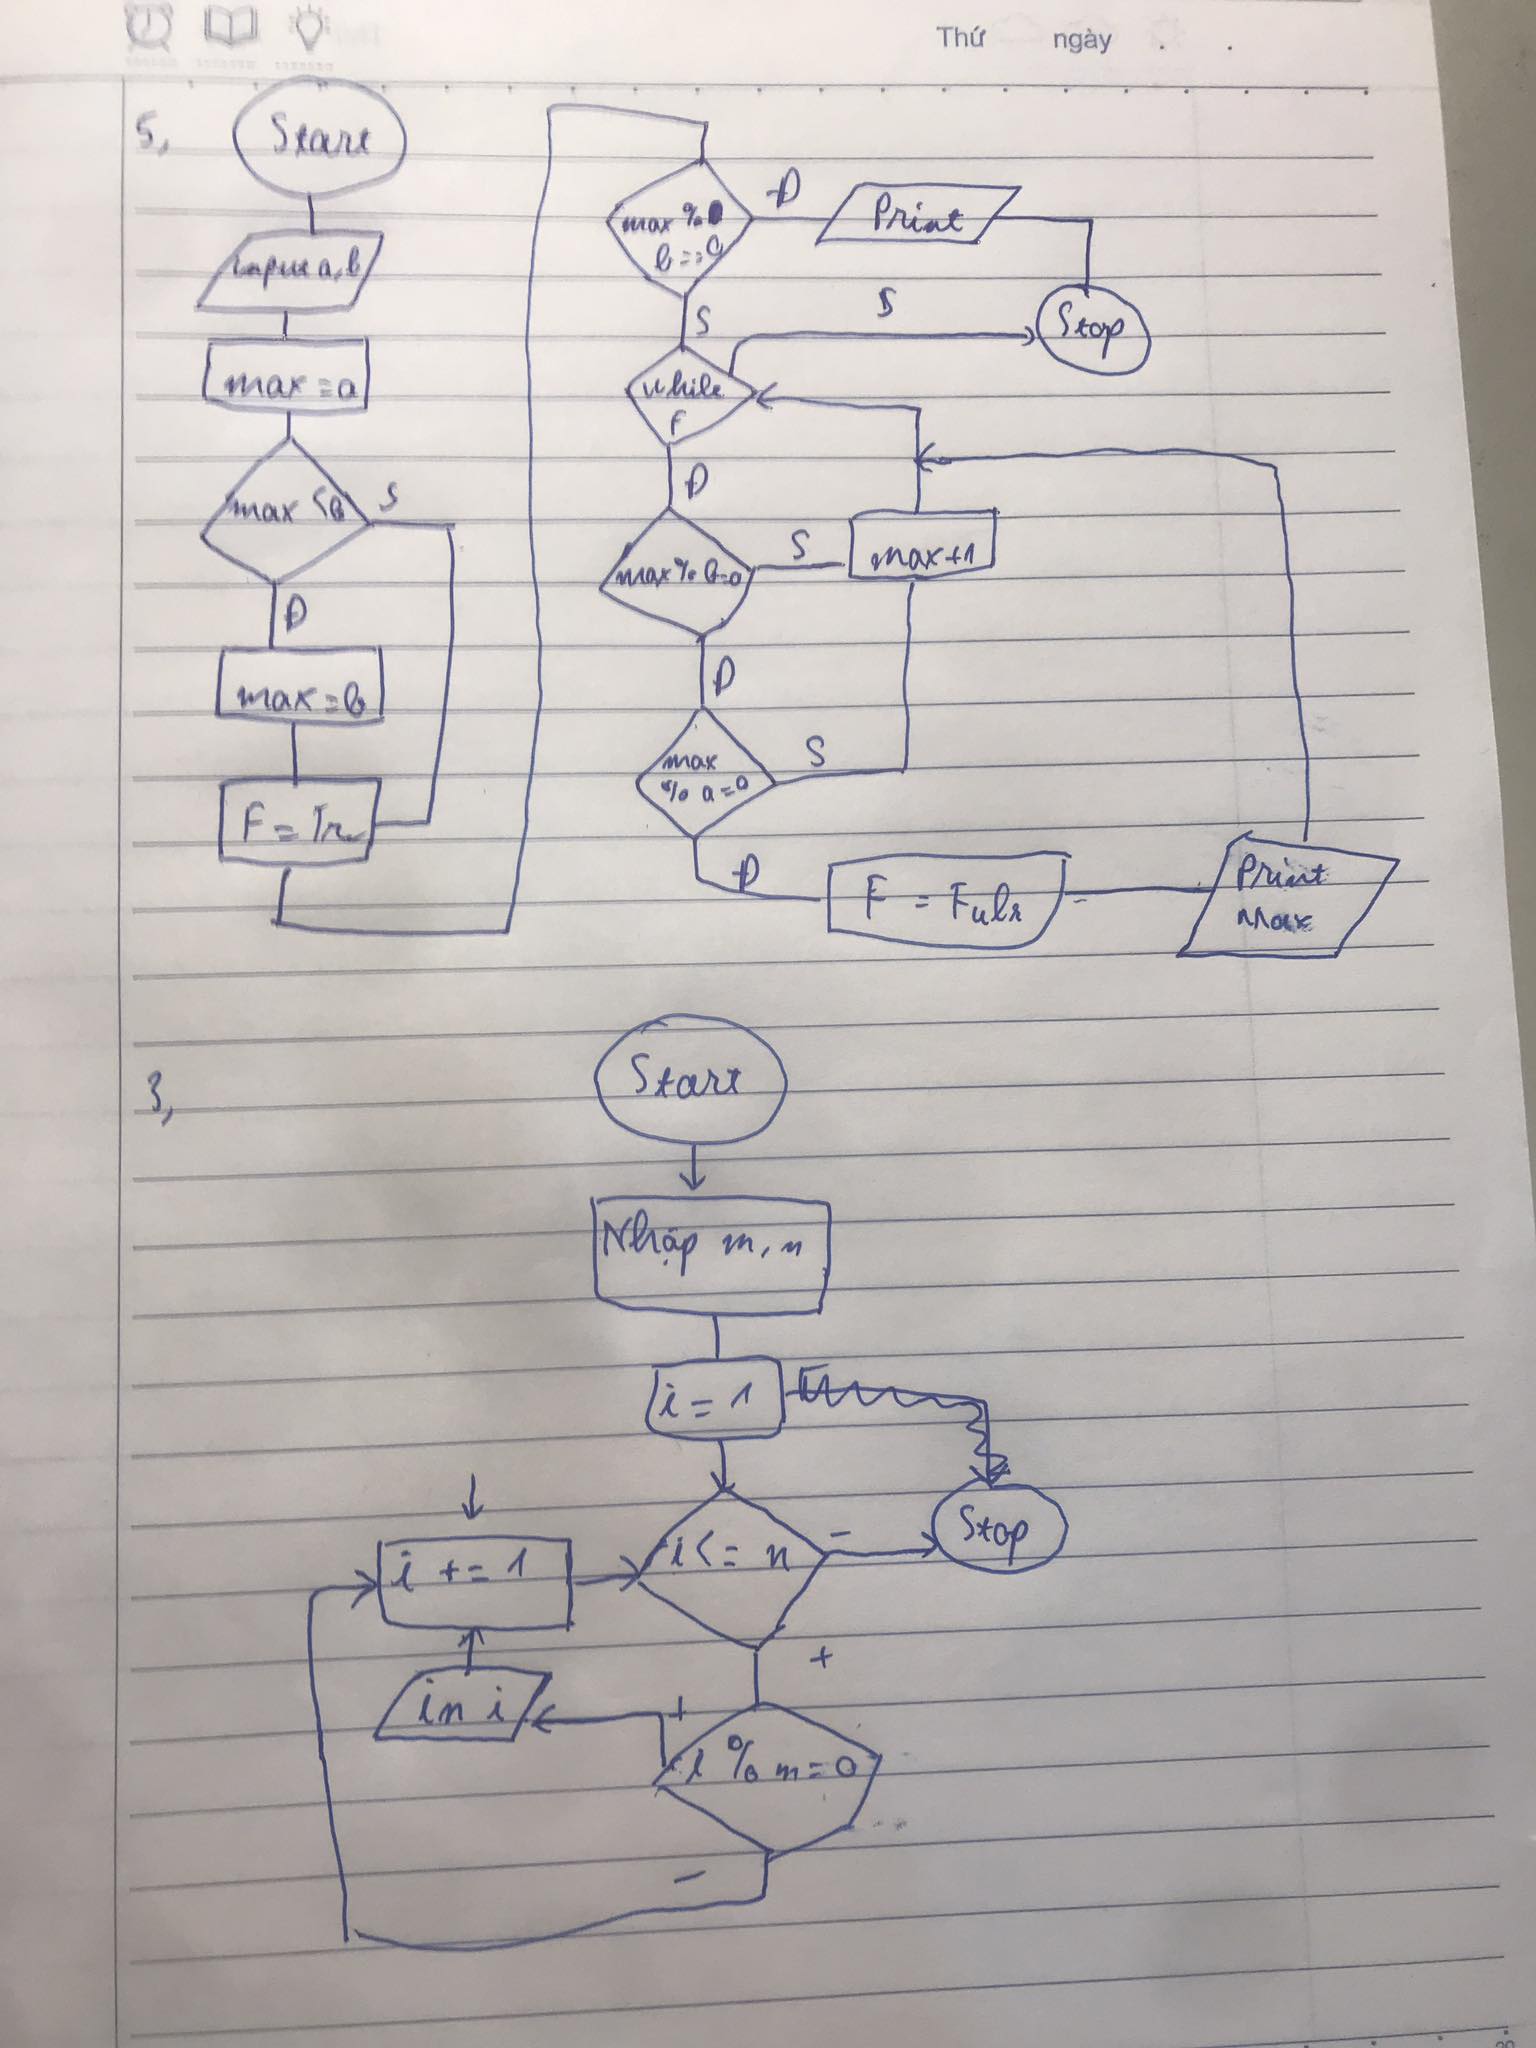 Thứ ngày . .
5,
Start
input a, b
max = a
max < b
S
Đ
max = b
F = Tr
max %
b == 0
Đ
Print
S
S
Stop
while
F
Đ
max % b = 0
S
max + 1
Đ
max
% a = 0
S
Đ
Print
Max
3,
Start
Nhập m, n
i = 1
i <= n
-
Stop
i += 1
+
in i
+
i % m = 0
-